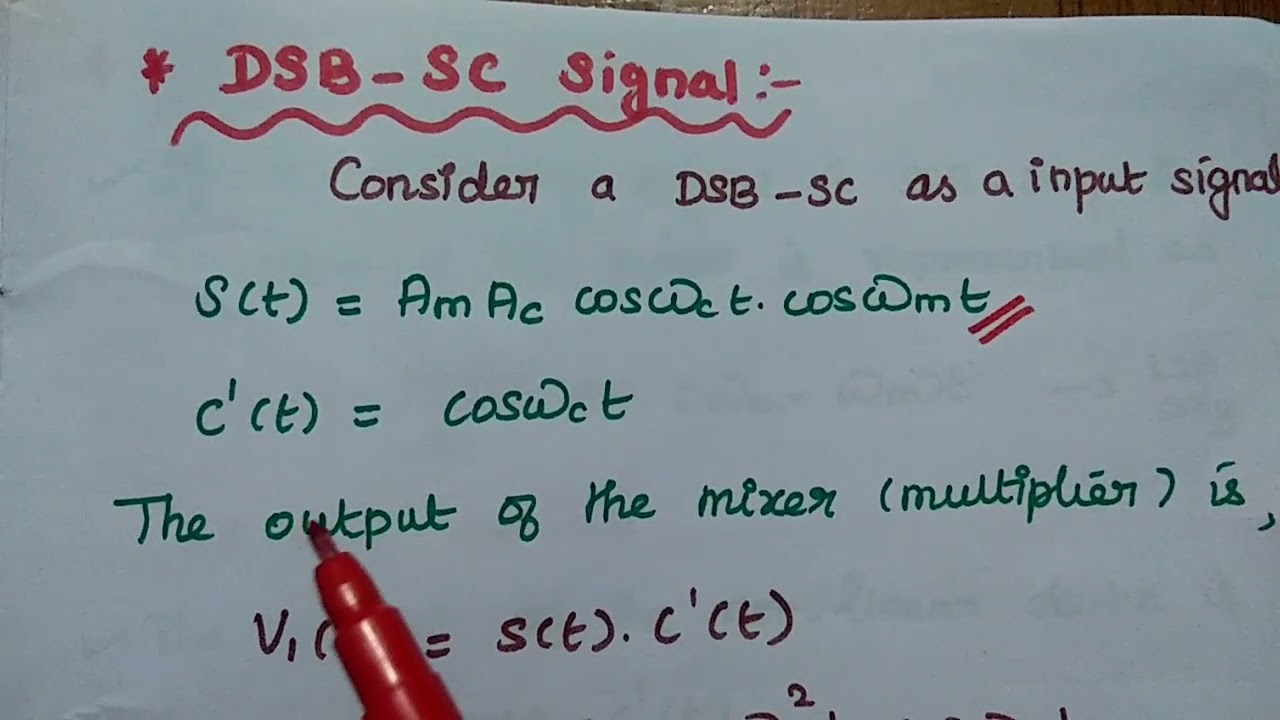 * DSB-SC Signal:-
Consider a DSB-SC as a input signal
S(t) = Am Ac cosωct. cosωmt
C'(t) = cosωct
The output of the mixer (multiplier) is,
V1( = S(t). C'(t)
2